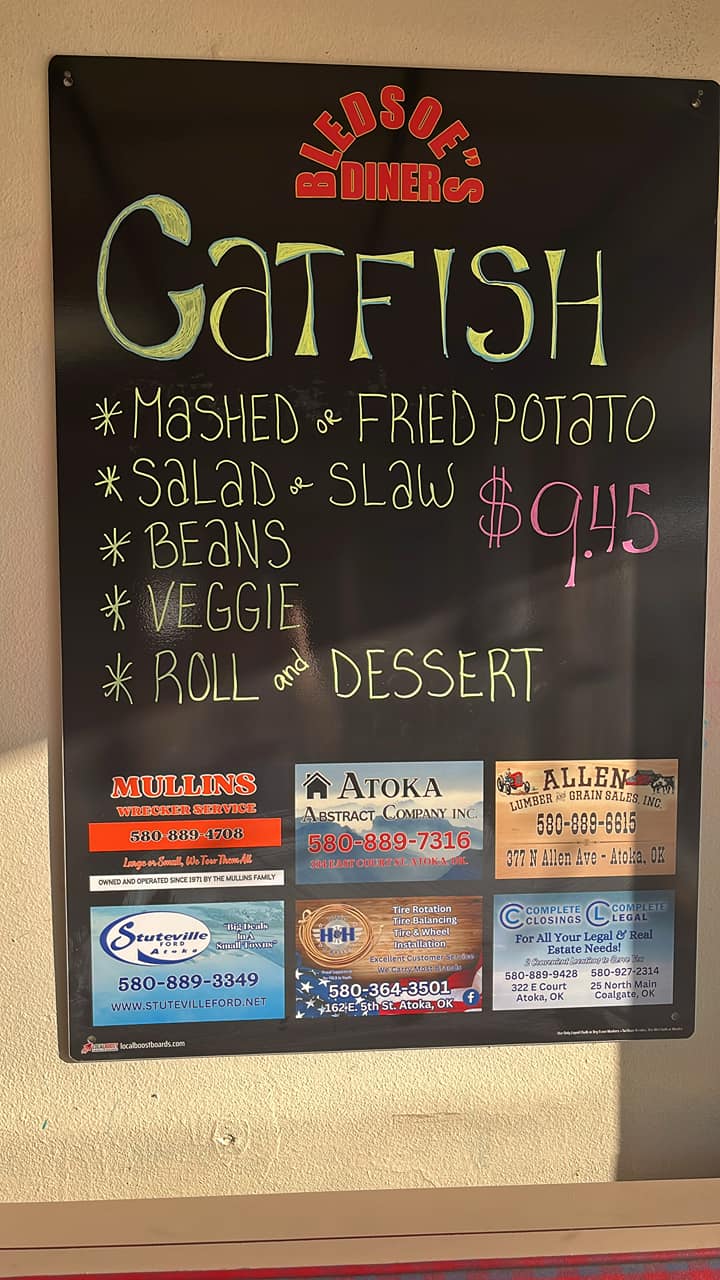 BLEDSOE"S
DINER
CATFISH
* MASHED OR FRIED POTATO
* SALAD OR SLAW $9.45
* BEANS
* VEGGIE
* ROLL and DESSERT
MULLINS
WRECKER SERVICE
580-889-4708
Large or Small, We Tow Them All
OWNED AND OPERATED SINCE 1971 BY THE MULLINS FAMILY
ATOKA
ABSTRACT COMPANY INC.
580-889-7316
EAST COURT ST. ATOKA, OK.
ALLEN
LUMBER AND GRAIN SALES, INC.
580-889-6615
377 N Allen Ave - Atoka, OK
Stuteville
FORD
Atoka
"Big Deals
In A
Small Town"
580-889-3349
WWW.STUTEVILLEFORD.NET
H&H
Tire Rotation
Tire Balancing
Tire & Wheel
Installation
Excellent Customer Service
We Carry Most Brands
580-364-3501
162 E. 5th St. Atoka, OK
COMPLETE CLOSINGS
COMPLETE LEGAL
For All Your Legal & Real
Estate Needs!
2 Convenient Locations to Serve You
580-889-9428 580-927-2314
322 E Court 25 North Main
Atoka, OK Coalgate, OK
localboostboards.com